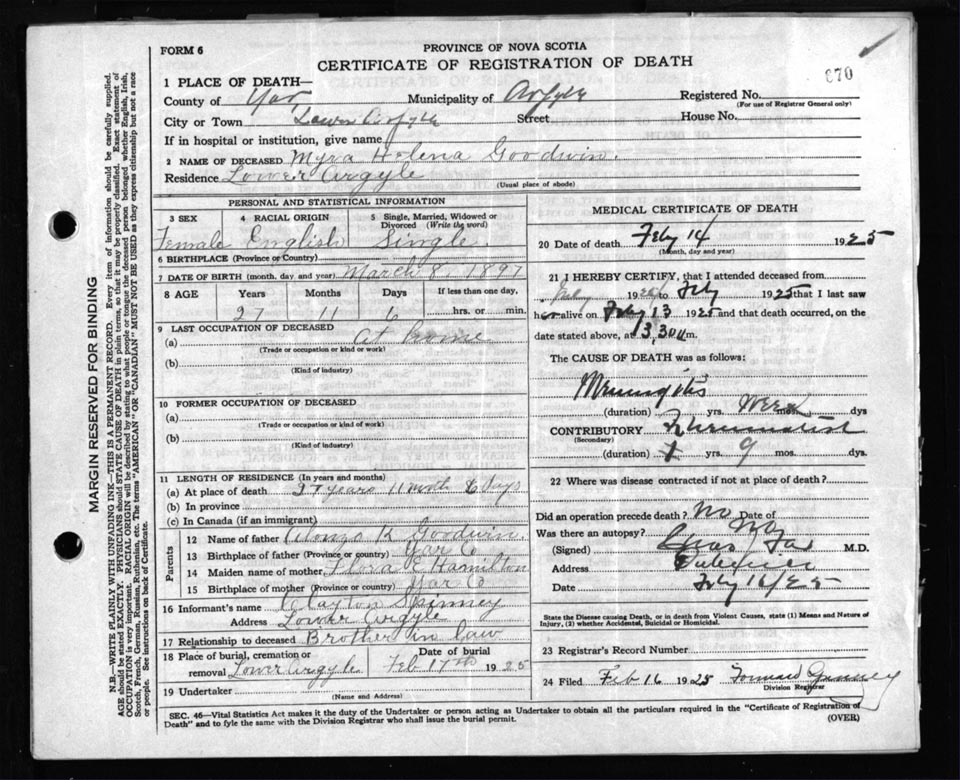 FORM 6
PROVINCE OF NOVA SCOTIA
CERTIFICATE OF REGISTRATION OF DEATH
870
1 PLACE OF DEATH—
County of Yar Municipality of Argyle Registered No.
(For use of Registrar General only)
City or Town Lower Argyle Street House No.
If in hospital or institution, give name
2 NAME OF DECEASED Myra Helena Goodwin.
Residence Lower Argyle
(Usual place of abode)
PERSONAL AND STATISTICAL INFORMATION
3 SEX 4 RACIAL ORIGIN 5 Single, Married, Widowed or Divorced (Write the word)
Female English Single
6 BIRTHPLACE (Province or Country)
7 DATE OF BIRTH (month, day and year) March 8, 1897
8 AGE Years Months Days If less than one day,
27 11 6 hrs. or min.
9 LAST OCCUPATION OF DECEASED
(a) At home
(Trade or occupation or kind or work)
(b)
(Kind of industry)
10 FORMER OCCUPATION OF DECEASED
(a)
(Trade or occupation or kind of work)
(b)
(Kind of industry)
11 LENGTH OF RESIDENCE (In years and months)
(a) At place of death 27 years 11 month 6 Days
(b) In province
(c) In Canada (if an immigrant)
Parents
12 Name of father Alonzo K Goodwin
13 Birthplace of father (Province or country) Yar Co
14 Maiden name of mother Flora E Hamilton
15 Birthplace of mother (Province or country) Yar Co
16 Informant's name Clayton Spinney
Address Lower Argyle
17 Relationship to deceased Brother in law
18 Place of burial, cremation or removal Lower Argyle Date of burial Feb 17th 1925
19 Undertaker
(Name and Address)
MEDICAL CERTIFICATE OF DEATH
20 Date of death Feby 14 1925
(Month, day and year)
21 I HEREBY CERTIFY, that I attended deceased from
192 to Feby 1925 that I last saw
her alive on Feby 13 1925 and that death occurred, on
date stated above, at 3,30 m.
The CAUSE OF DEATH was as follows:
Meningitis
(duration) yrs. week mos. dys
CONTRIBUTORY
(Secondary)
(duration) yrs. 9 mos. dys
22 Where was disease contracted if not at place of death?
Did an operation precede death? No Date of
Was there an autopsy? No
(Signed) M.D.
Address
Date Feby 16/25
State the Disease causing Death, or in death from Violent Causes, state (1) Means and Nature of
Injury, (2) whether Accidental, Suicidal or Homicidal.
23 Registrar's Record Number
24 Filed Feb 16 1925
Division Registrar
SEC. 46—Vital Statistics Act makes it the duty of the Undertaker or person acting as Undertaker to obtain all the particulars required in the "Certificate of Registration of
Death" and to fyle the same with the Division Registrar who shall issue the burial permit.
(OVER)
MARGIN RESERVED FOR BINDING
N.B.—WRITE PLAINLY WITH UNFADING INK—THIS IS A PERMANENT RECORD. Every item of information should be carefully supplied.
AGE should be stated EXACTLY. PHYSICIANS should STATE CAUSE OF DEATH in plain terms, so that it may be properly classified. Exact statement of
OCCUPATION is very important. RACIAL ORIGIN will be described by stating to what people or tongue the deceased person belonged whether English, Irish,
Scotch, French, German, Russian, Ruthenian, etc. The terms "AMERICAN" OR "CANADIAN" MUST NOT BE USED as they express citizenship but not a race
or people. See instructions on back of Certificate.